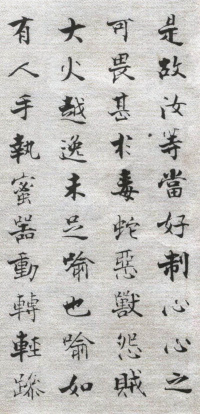 是故汝等當好制心心之
可畏甚於毒蛇惡獸怨賊
大火越逸未足喻也喻如
有人手執蜜器動轉輕躁